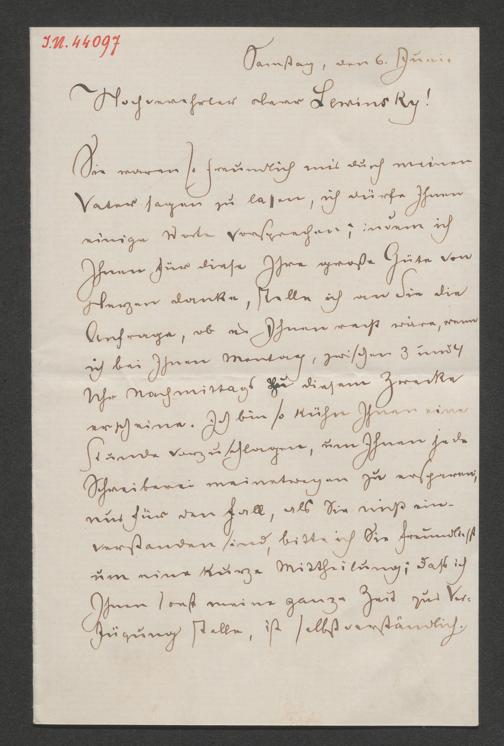 J.N. 44097
Samstag, den 6. Juni
Hochverehrter Herr Lewinsky!
Sie waren so freundlich mir durch meinen
Vater sagen zu lassen, ich dürfe Ihnen
einige Worte vorsprechen; indem ich
Ihnen für diese Ihre große Güte von
Herzen danke, stelle ich an Sie die
Anfrage, ob es Ihnen recht wäre, wenn
ich bei Ihnen Montag, zwischen 3 und 4
Uhr Nachmittags zu diesem Zwecke
erscheine. Ich bin so kühn Ihnen eine
Stunde vorzuschlagen, um Ihnen jede
Schreiberei meinetwegen zu ersparen;
nur für den Fall, als Sie nicht ein-
verstanden sind, bitte ich Sie freundlichst
um eine kurze Mittheilung; daß ich
Ihnen sonst meine ganze Zeit zur Ver-
fügung stelle, ist selbstverständlich.